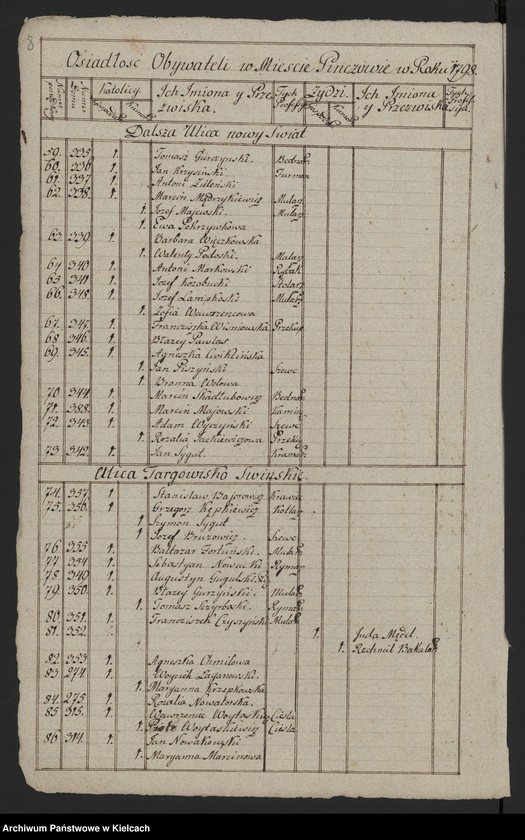 8
Osiadłość Obywateli w Miescie Pinczowie w Roku 1798.
Numer porząd. Numer Domu Katolicy Ich Imiona y Prze Tych Żydzi Ich Imiona Tychże
Gospodarz Komor. zwiska. Profess. Gospodarz Komor. y Przezwiska Profes sya.
Dalsza Ulica nowy Swiat
59. 335. 1. Tomasz Gurczynski. Bednarz
60. 336 1. Jan Krzysinski Furman
61. 337 1. Antoni Zieleński
62. 338. 1. Marcin Mędrzykiewicz Mularz
1. Jozef Majewski. Mularz
1. Ewa Pokrzywkowa
63. 339 1. Barbara Więczkowska
1. Walenty Podoski. Malarz
64 340 1. Antoni Markowski Rybak
65 341 1. Jozef Kozobucki Stolarz
66. 348. 1. Jozef Lampkoski Mularz
1. Zofia Wawrzencowa
67. 347. 1. Franciszka Wisniowska Przekup
68 346. 1. Błazey Pawlas
69. 345. 1. Agneszka Cwiklińska
1. Jan Piszynski Szewc
1. Bronna Wolowa
70 344. 1. Marcin Skadłubowicz Bednarz
71. 388. 1. Marcin Majowski Kamin
72. 343. 1. Adam Wyczynski Szewc
1. Rozalia Jachiewiczowa Przekup
73. 342. 1. Jan Sygut. Kramarz
Ulica Targowisko Swinskie.
74. 357. 1. Stanisław Bajorowicz Krawiec
75. 356. 1. Grzegorz Kępkiewicz Kotlarz
1 Szymon Sygut
1 Jozef Bruzowicz. Szewc
76 355 1. Baltazar Fortuński. Mularz
77. 354 1. Sebastyan Nowacki Rymarz
78 340 1. Augustyn Gugulski.
79. 350. 1. Błazey Gurzyński. Mularz
1. Tomasz Szczyrbaski. Rymarz
80. 351. 1. Franciszek Czyszyński Mularz
81. 352. 1. Juda Męcel.
1. Rechmil Bakłalarz
82. 353 1. Agneszka Chmilowa
83. 274. 1. Woyciech Łaganowski.
1. Maryanna Krzepkowska
84. 275. 1. Rozalia Nowalonska.
85 315. 1. Wawrzeniec Woytasiewicz Ciesla
1. Piotr Woytasiewicz Ciesla
86 314. 1. Jan Nowakowski
1. Maryanna Marcinowa
Archiwum Państwowe w Kielcach